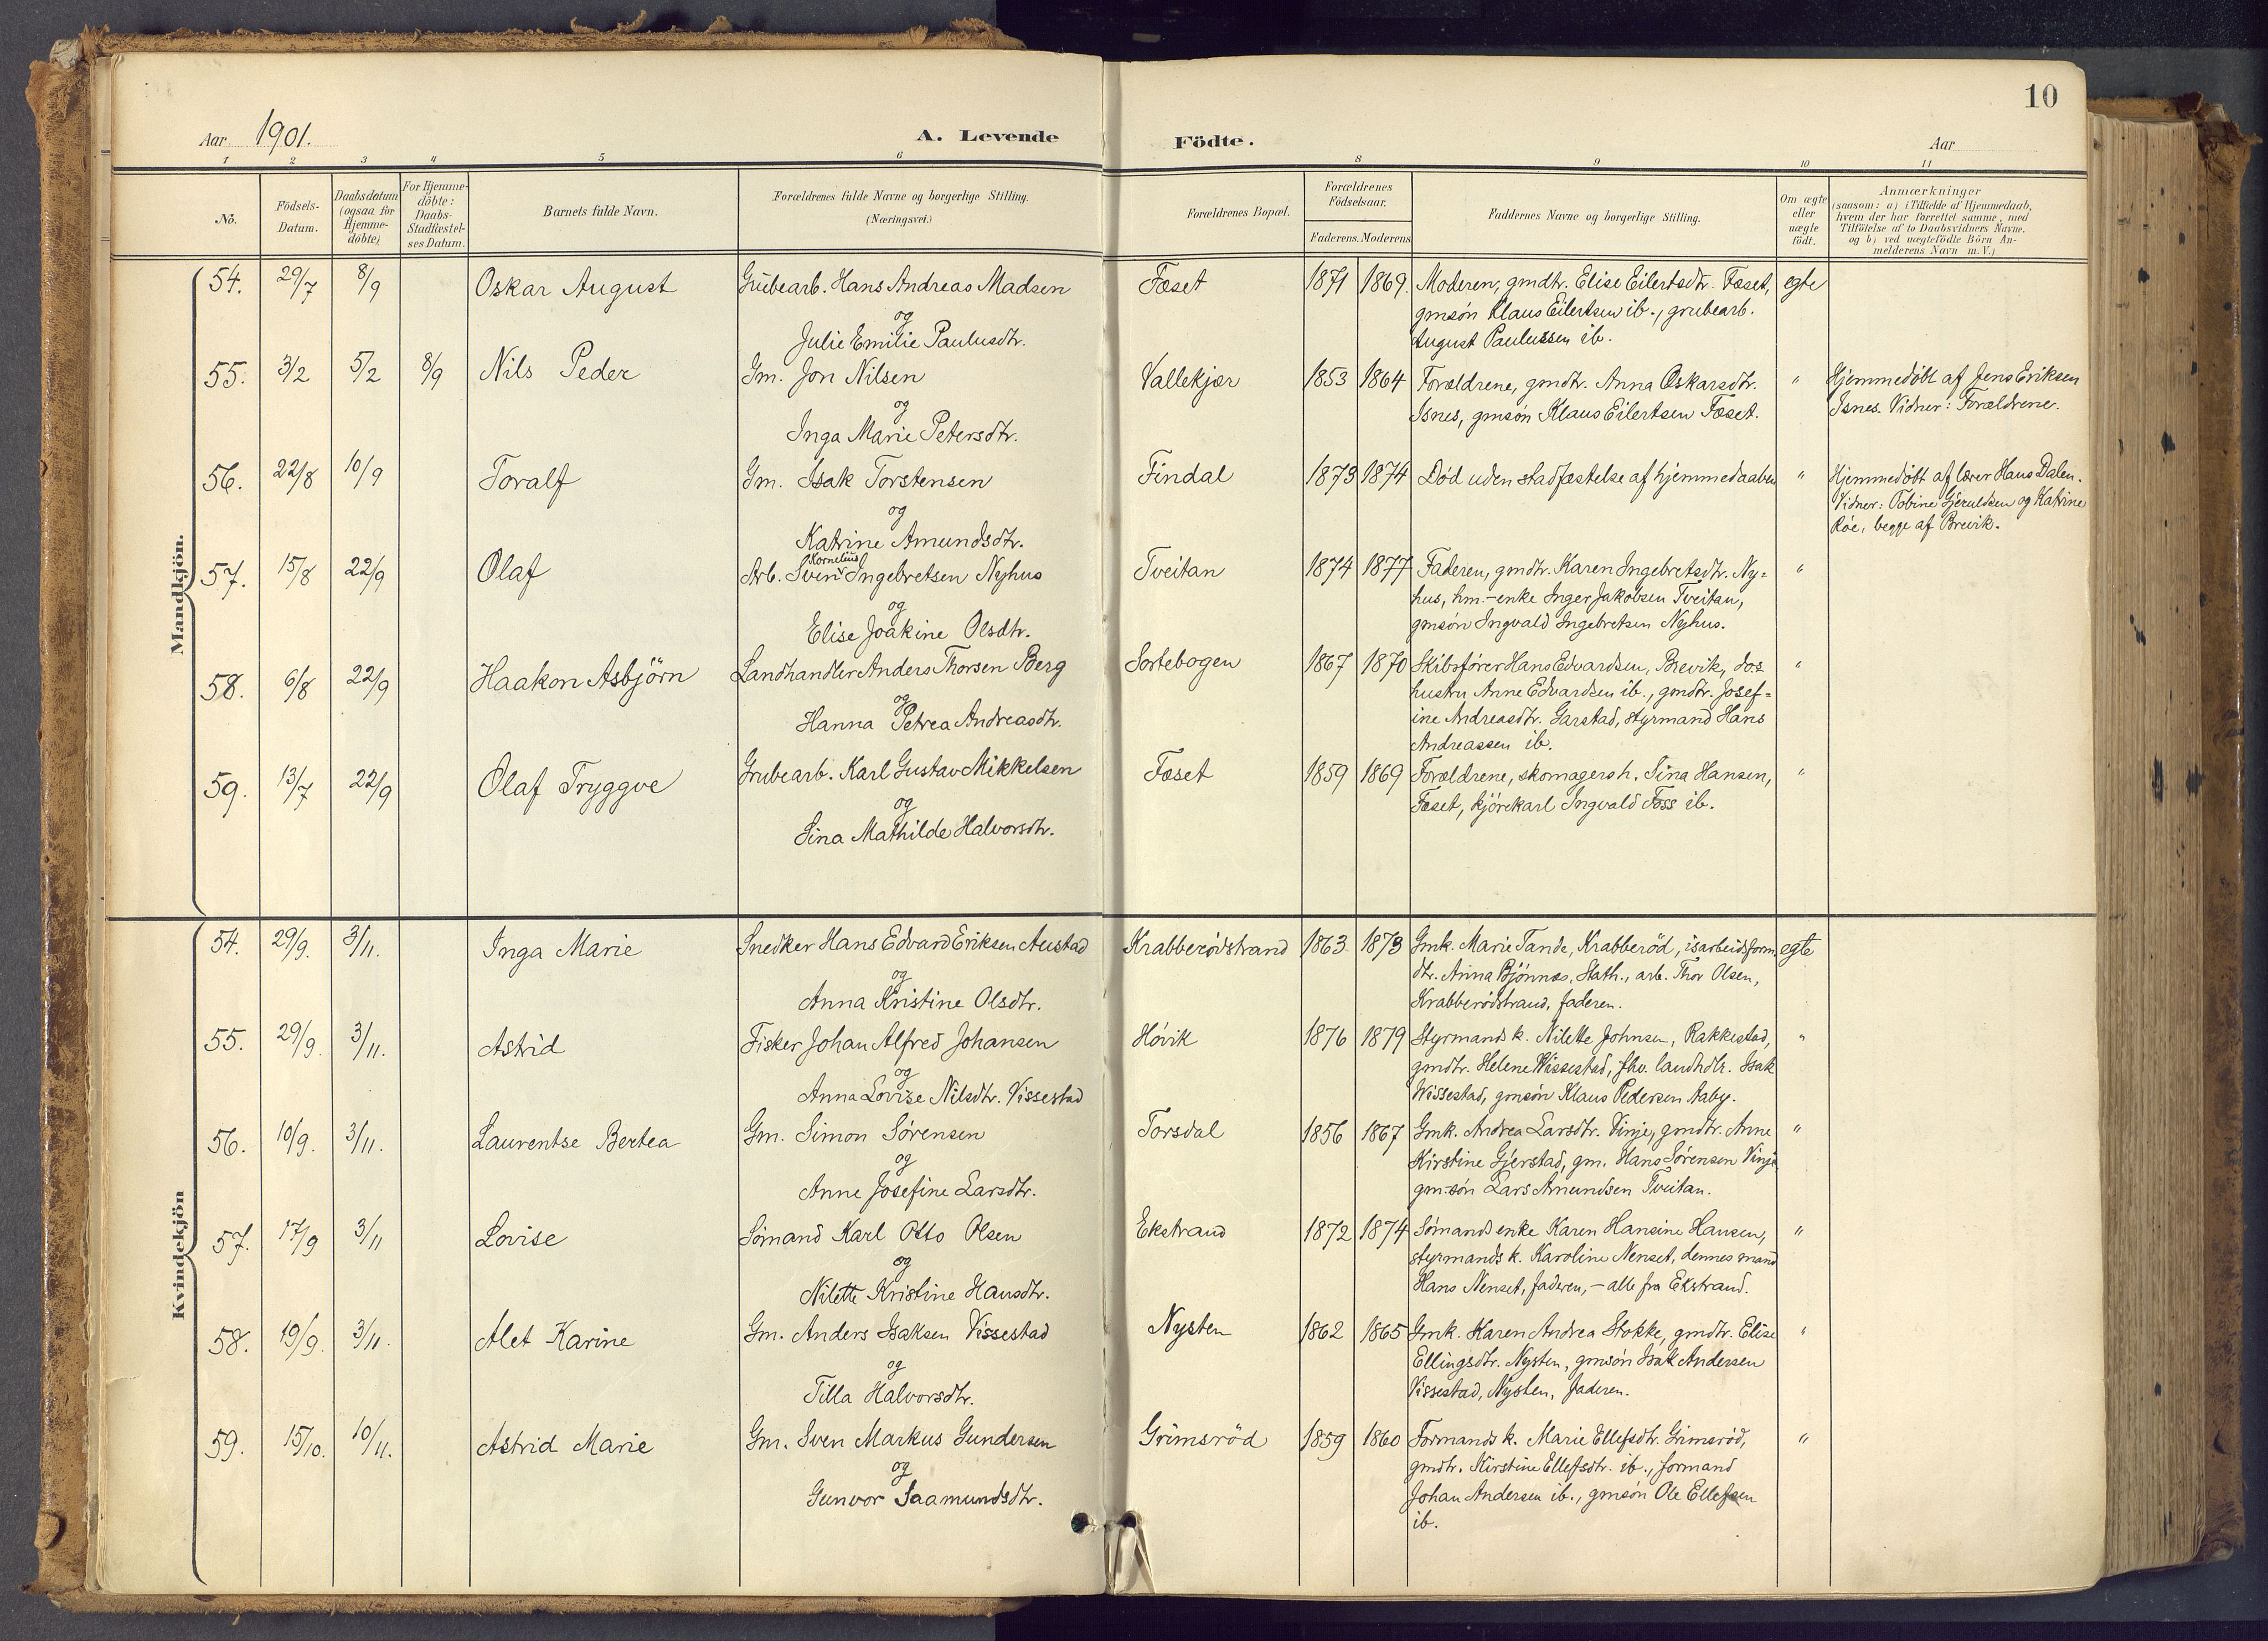 10
Aar 1901.
A. Levende
Födte.
Aar
1 2 3 4 5 6 8 9 10 11
No.
Födsels-
Datum.
Daabsdatum
(ogsaa for
Hjemme-
döbte)
For Hjemme-
döbte:
Daabs-
Stadfæstel-
ses Datum.
Barnets fulde Navn.
Forældrenes fulde Navne og borgerlige Stilling.
(Næringsvei.)
Forældrenes Bopæl.
Forældrenes
Födselsaar.
Faderens. Moderens
Faddernes Navne og borgerlige Stilling.
Om ægte
eller
uægte
födt.
Anmærkninger
(saasom: a) i Tilfælde af Hjemmedaab,
hvem der har forrettet samme, med
Tilföielse af to Daabsvidners Navne.
og b) ved uægtefödte Börn An-
melderens Navn m.V.)
Mandkjön.
54. 29/7 8/9 Oskar August
Grubearb. Hans Andreas Madsen
og
Julie Emilie Paulusdtr.
Fæset 1871 1869.
Moderen, gmdtr. Elise Eilertsdtr. Fæset,
gmsön Klaus Eilertsen ib., grubearb.
August Paulussen ib.
egte
55. 3/2 5/2 8/9 Nils Peder
Gm. Jon Nilsen
og
Inga Marie Petersdtr.
Vallekjær 1853 1864
Forældrene, gmdtr. Anna Oskarsdtr.
Isnes, gmsön Klaus Eilertsen Fæset.
"
Hjemmedöbt af Jens Eriksen
Isnes. Vidner: Forældrene.
56. 22/8 10/9 Toralf
Gm. Isak Torstensen
og
Katrine Amundsdtr.
Findal 1873 1874
Död uden stadfæstelse af hjemmedaaben
"
Hjemmedöbt af lærer Hans Dalen.
Vidner: Tobine Gjeruldsen og Katrine
Röe, begge af Brevik.
57. 15/8 22/9 Olaf
Kornelius
Arb. Sven Ingebretsen Nyhus
og
Elise Joakine Olsdtr.
Tveitan 1874 1877
Faderen, gmdtr. Karen Ingebretsdtr. Ny=
hus, hm.-enke Inger Jakobsen Tveitan,
gmsön Ingvald Ingebretsen Nyhus.
"
58. 6/8 22/9 Haakon Asbjörn
Landhandler Anders Thorsen Berg
og
Hanna Petrea Andreasdtr.
Sortebogen 1867 1870
Skibsförer Hans Edvardsen, Brevik, dos
hustru Anne Edvardsen ib., gmdtr. Josef=
ine Andreasdtr. Garstad, styrmand Hans
Andreassen ib.
"
59. 13/7 22/9 Olaf Tryggve
Grubearb. Karl Gustav Mikkelsen
og
Sina Mathilde Halvorsdtr.
Fæset 1859 1869
Forældrene, skomagersh. Sina Hansen,
Fæset, kjörekarl Ingvald Foss ib.
"
Kvindekjön
54. 29/9. 3/11. Inga Marie
Snedker Hans Edvard Eriksen Austad
og
Anna Kristine Olsdtr.
Krabberödstrand 1863 1873
Gmk. Marie Tande, Krabberöd, isarbeidsform
dtr. Anna Bjönnes, Stath., arb. Thor Olsen,
Krabberödstrand, faderen.
egte
55. 29/9. 3/11. Astrid
Fisker Johan Alfred Johansen
og
Anna Lovise Nilsdtr. Vissestad
Høvik 1876 1879
Styrmands k. Nilette Johnsen, Rakkestad,
gmdtr. Helene Wissestad, fhv. landhdlr. Isak
Wissestad, gmsön Klaus Pedersen Aaby.
"
56. 10/9. 3/11. Laurentse Bertea
Gm. Simon Sörensen
og
Anne Josefine Larsdtr.
Torsdal 1856 1867
Gmk. Andrea Larsdtr. Vinje, gmdtr. Anne
Kirstine Gjerstad, gm. Hans Sörensen Vinje
gm-sön Lars Amundsen Tveitan.
"
57. 17/9 3/11 Lovise
Sömand Karl Otto Olsen
og
Nilette Kristine Hansdtr.
Ekstrand 1872 1874
Sömands enke Karen Hansine Hansen,
styrmands k. Karoline Nenset, dennes mand
Hans Nenset, faderen, - alle fra Ekstrand.
"
58. 19/9. 3/11. Alet Karine
Gm. Anders Isaksen Vissestad
og
Tilla Halvorsdtr.
Nysten 1862 1865
Gmk. Karen Andrea Stokke, gmdtr. Elise
Ellingsdtr. Nysten, gmsön Isak Andersen
Vissestad, Nysten, faderen.
"
59. 15/10. 10/11. Astrid Marie
Gm. Sven Markus Gundersen
og
Gunvor Saamundsdtr.
Grimsröd 1859 1860
Formands k. Marie Ellefsdtr. Grimsröd,
gmdtr. Kirstine Ellefsdtr. ib., formand
Johan Andersen ib., gmsön Ole Ellefsen
ib.
"